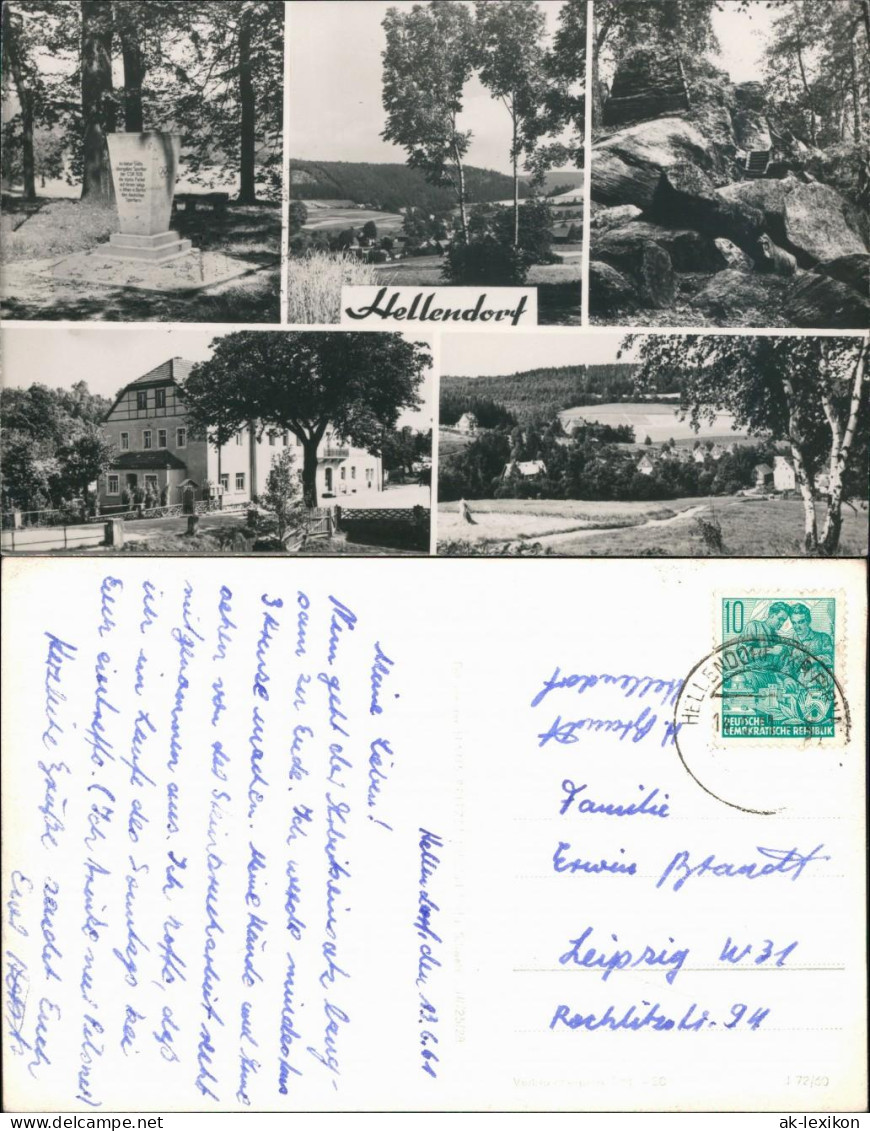 Hellendorf
10
DEUTSCHE
DEMOKRATISCHE REPUBLIK
HELLENDORF
H. Brandt
Hellendorf
Familie
Erwin Brandt
Leipzig W 31
Rochlitzstr. 94
172/60
Hellendorf den 13.6.61
Meine Lieben!
Nun geht der Arbeitseinsatz lang-
sam zu Ende. Ich werde mindestens
3 Kreuze machen. Meine Hände und Knie
sehen von der Steinbrucharbeit sehr
mitgenommen aus. Ich hoffe, daß
ich im Laufe des Sonntags bei
Euch eintreffe. (Ich trinke nur Pilsner)
Herzliche Grüße sendet Euch
Euer
ak-lexikon